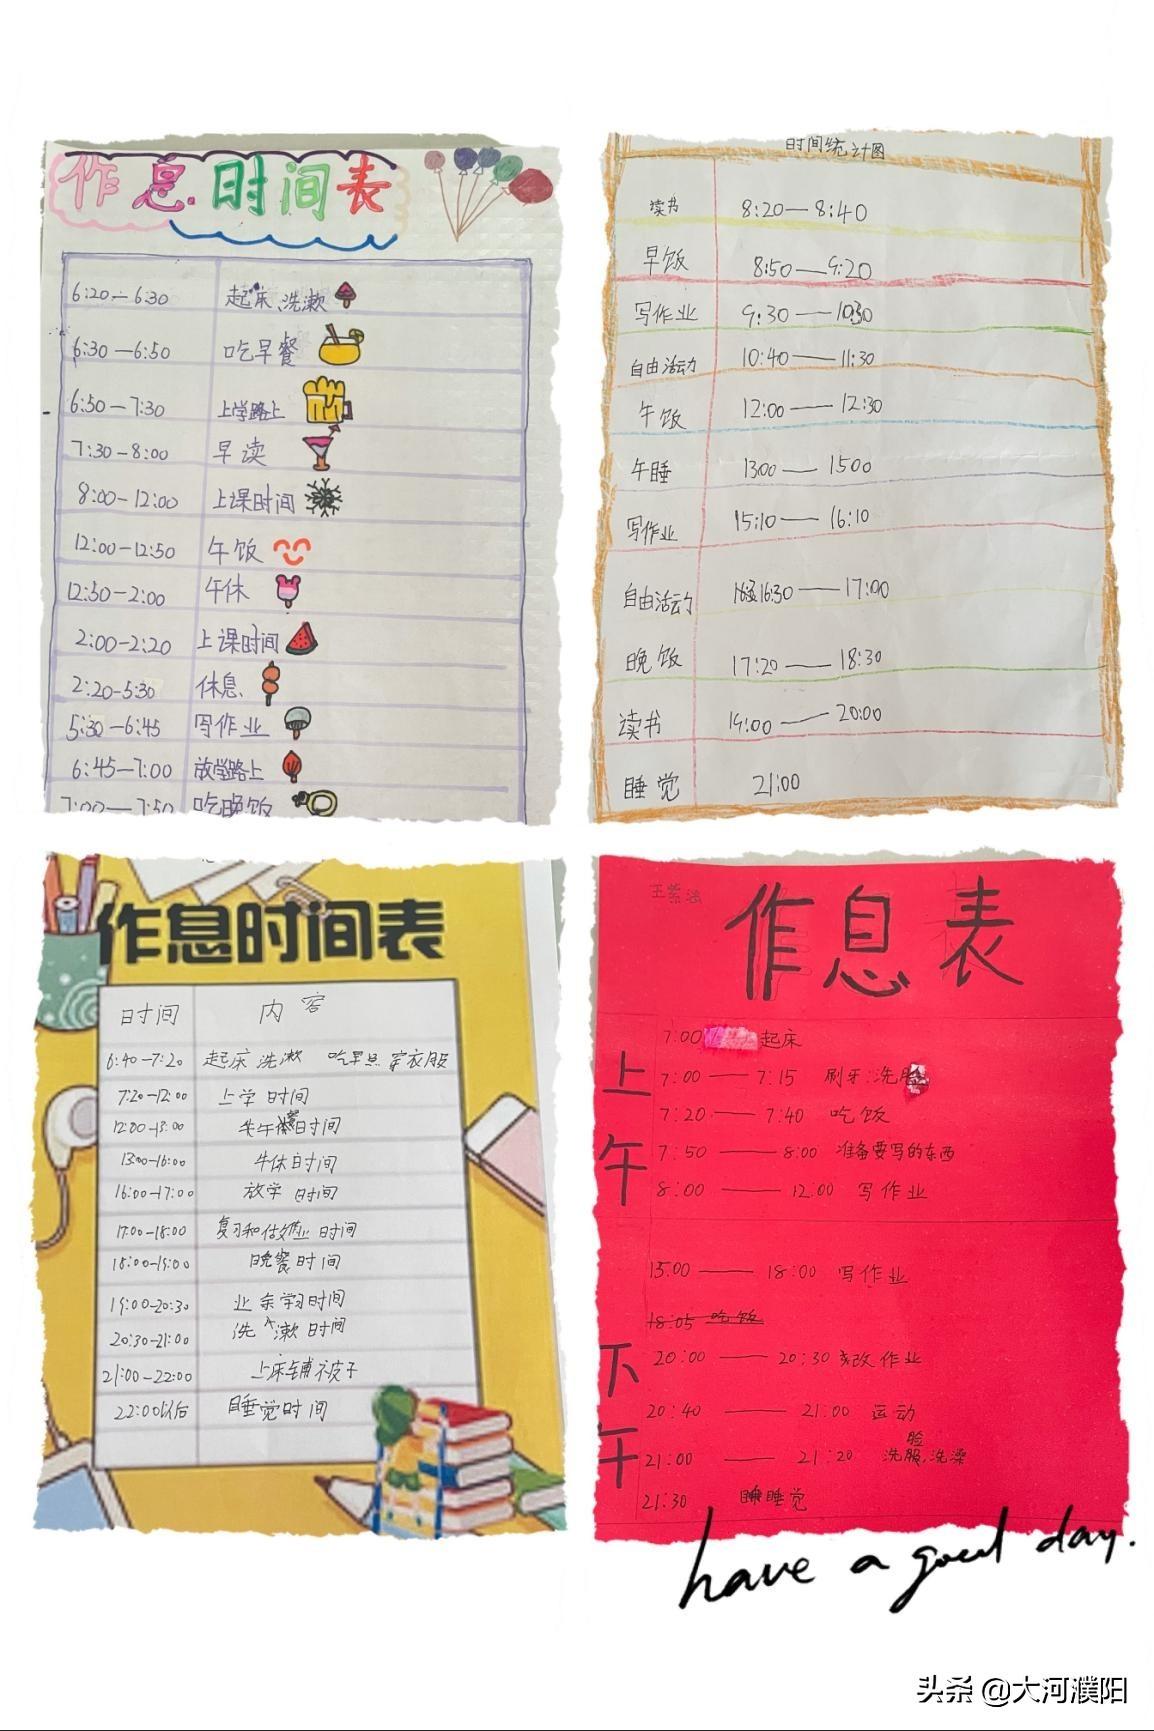 作息时间表
6:20-6:30 起床、洗漱
6:30-6:50 吃早餐
6:50-7:30 上学路上
7:30-8:00 早读
8:00-12:00 上课时间
12:00-12:50 午饭
12:50-2:00 午休
2:00-2:20 上课时间
2:20-5:30 休息
5:30-6:45 写作业
6:45-7:00 放学路上
7:00-7:50 吃晚饭
时间统计图
读书 8:20—8:40
早饭 8:50—9:20
写作业 9:30—10:30
自由活动 10:40—11:30
午饭 12:00—12:30
午睡 13:00—15:00
写作业 15:10—16:10
自由活动 16:30—17:00
晚饭 17:20—18:30
读书 19:00—20:00
睡觉 21:00
作息时间表
时间 内容
6:40-7:20 起床 洗漱 吃早点 穿衣服
7:20-12:00 上学时间
12:00-13:00 午 时间
13:00-16:00 午休时间
16:00-17:00 放学时间
17:00-18:00 复习和做作业时间
18:00-19:00 晚餐时间
19:00-20:30 业余学习时间
20:30-21:00 洗漱时间
21:00-22:00 上床铺被子
22:00以后 睡觉时间
作息表
上午
7:00 起床
7:00—7:15 刷牙.洗脸
7:20—7:40 吃饭
7:50—8:00 准备要写的东西
8:00—12:00 写作业
下午
15:00—18:00 写作业
18:05 吃饭
20:00—20:30 改作业
20:40—21:00 运动
21:00—21:20 洗脸,洗澡
21:30 睡觉
have a good day.
头条 @大河濮阳